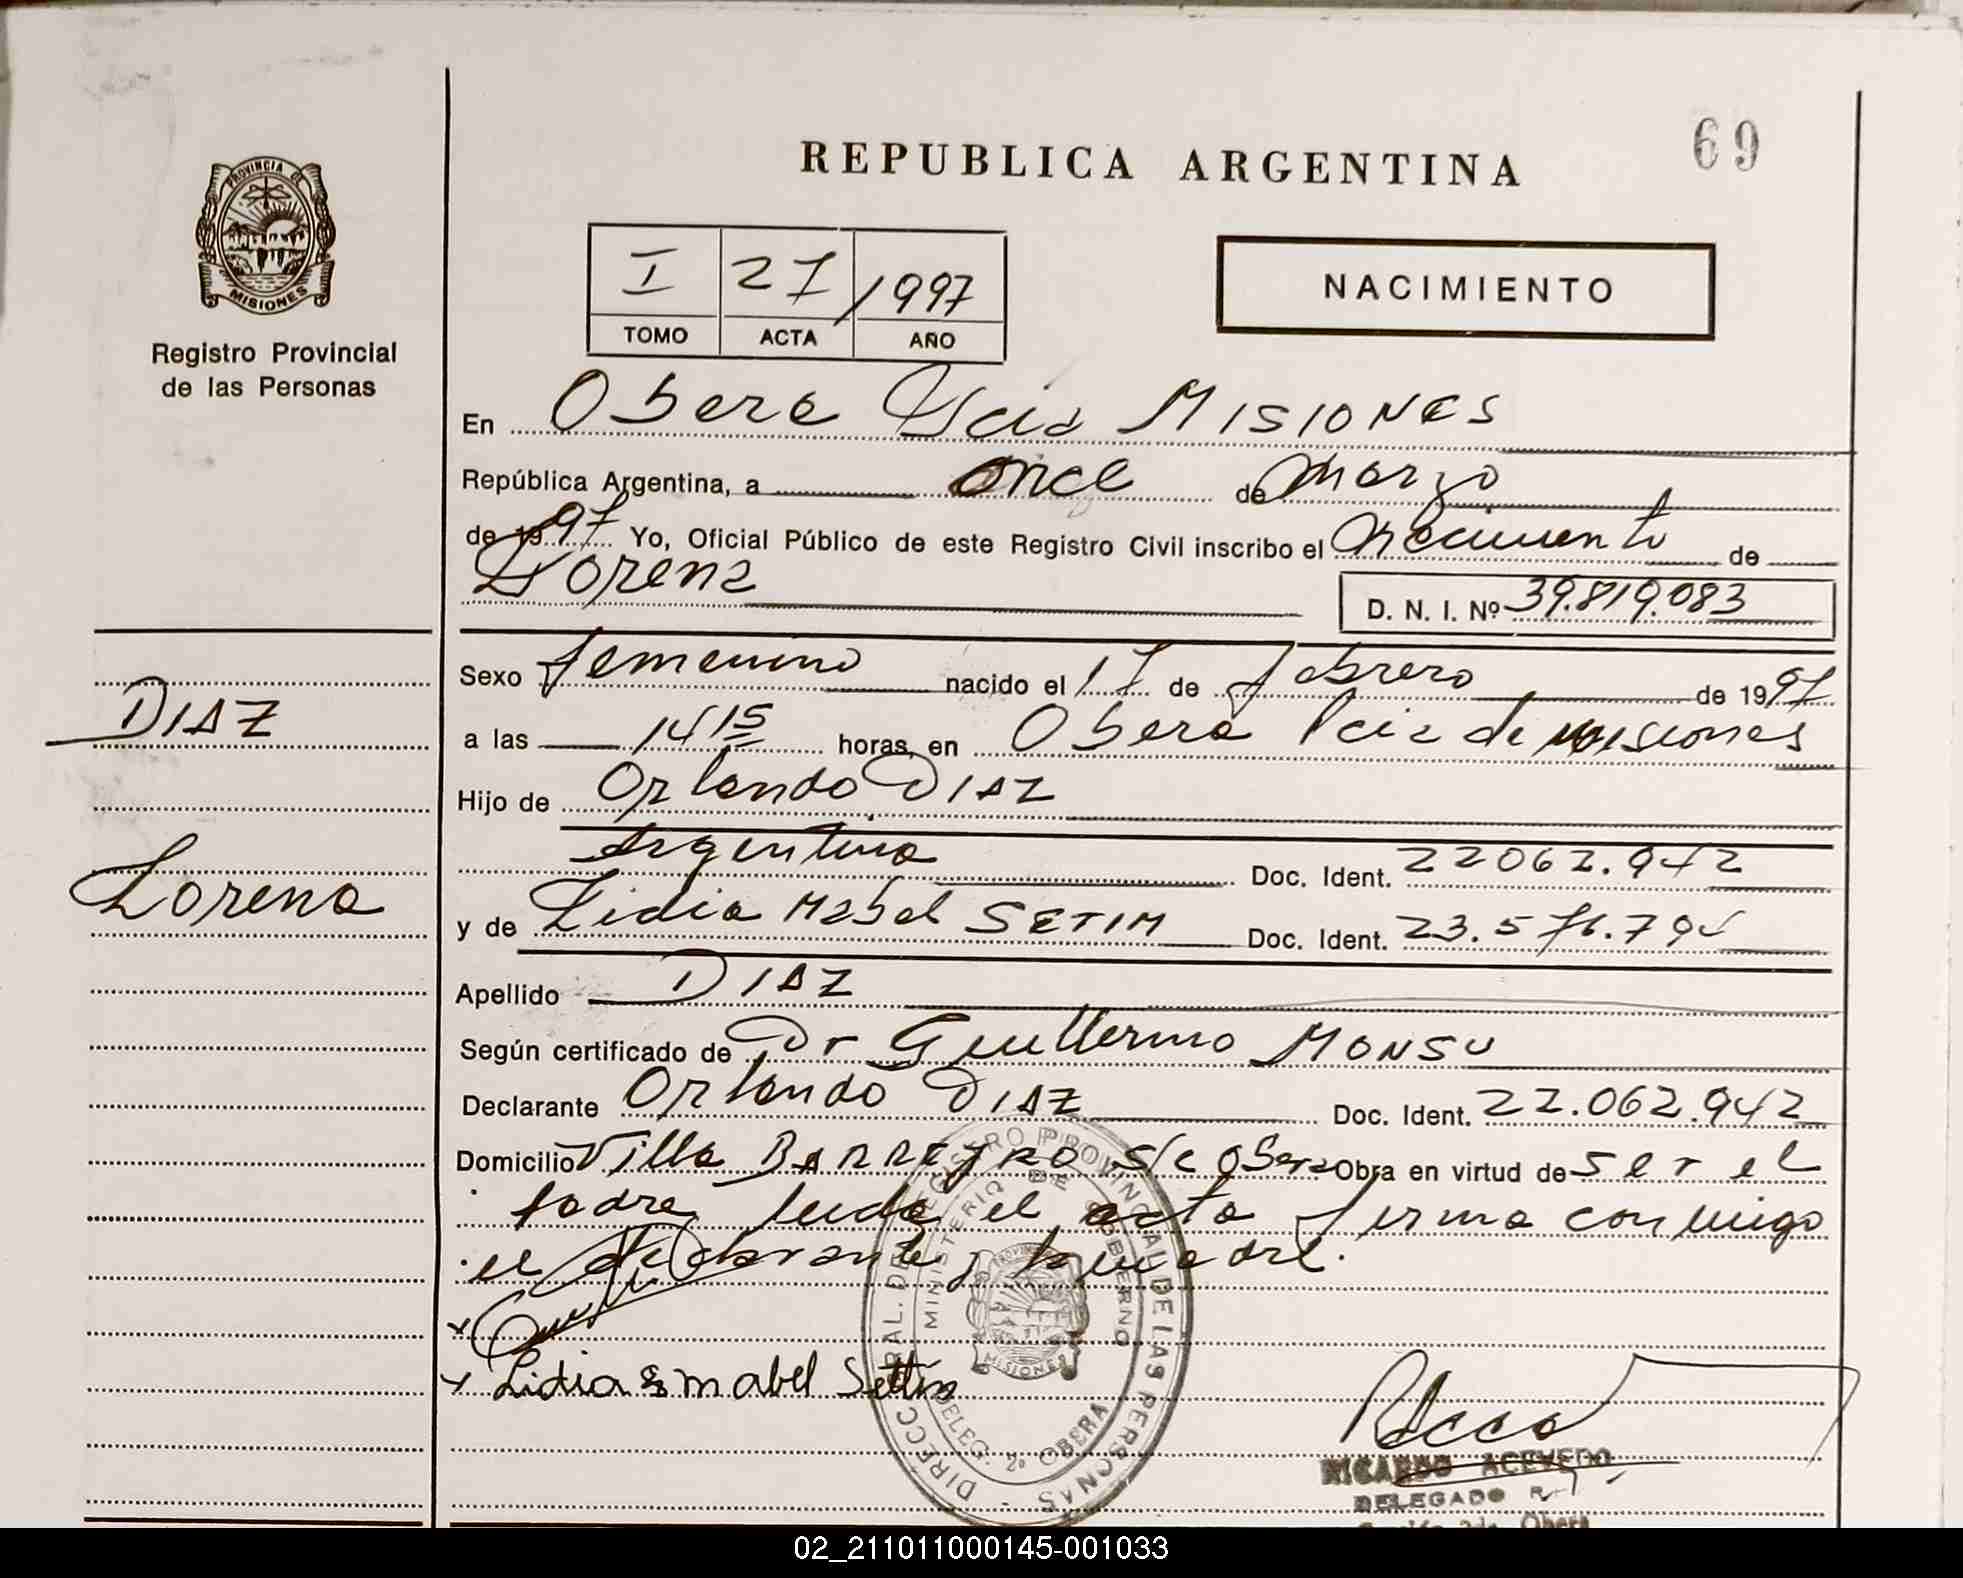 69
REPUBLICA ARGENTINA
PROVINCIA DE
MISIONES
Registro Provincial
de las Personas
I 27 / 1997
TOMO ACTA AÑO
NACIMIENTO
En Obera Pcia MISIONES
República Argentina, a once de Marzo
de 1997 Yo, Oficial Público de este Registro Civil inscribo el Nacimiento de
Lorena D. N. I. Nº 39.819.083
Sexo femenino nacido el 17 de febrero de 1997
DIAZ
a las 14 15 horas, en Obera Pcia de misiones
Hijo de Orlando DIAZ
Argentina Doc. Ident. 22062.942
Lorena
y de Lidia Mabel SETIM Doc. Ident. 23.576.794
Apellido DIAZ
Según certificado de Dr Guillermo MONSU
Declarante Orlando DIAZ Doc. Ident. 22.062.942
Domicilio Villa BARREYRO s/c Obera Obra en virtud de ser el
padre leida el acta firma conmigo
el declarante y la madre.
Lidia Mabel
DIRECC. GRAL. DEL REGISTRO PROVINCIAL DE LAS PERSONAS
MINISTERIO DE GOBIERNO
DELEG. 2ª OBERA
MISIONES
RICARDO ACEVEDO
DELEGADO
Obera
02_211011000145-001033